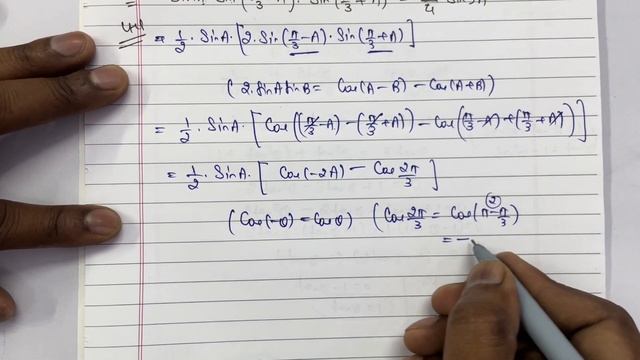 Sin(π/3 - A) · Sin(π/3 + A) = 1/4 Sin3A
LHS = 1/2 · SinA · [2 · Sin(π/3 - A) · Sin(π/3 + A)]
(2 · SinA SinB = Cos(A - B) - Cos(A + B))
= 1/2 · SinA · [Cos((π/3 - A) - (π/3 + A)) - Cos(π/3 - A) + (π/3 + A))]
= 1/2 · SinA · [Cos(-2A) - Cos 2π/3]
(Cos(-θ) = Cosθ) (Cos 2π/3 = Cos(π - π/3)
②
= -